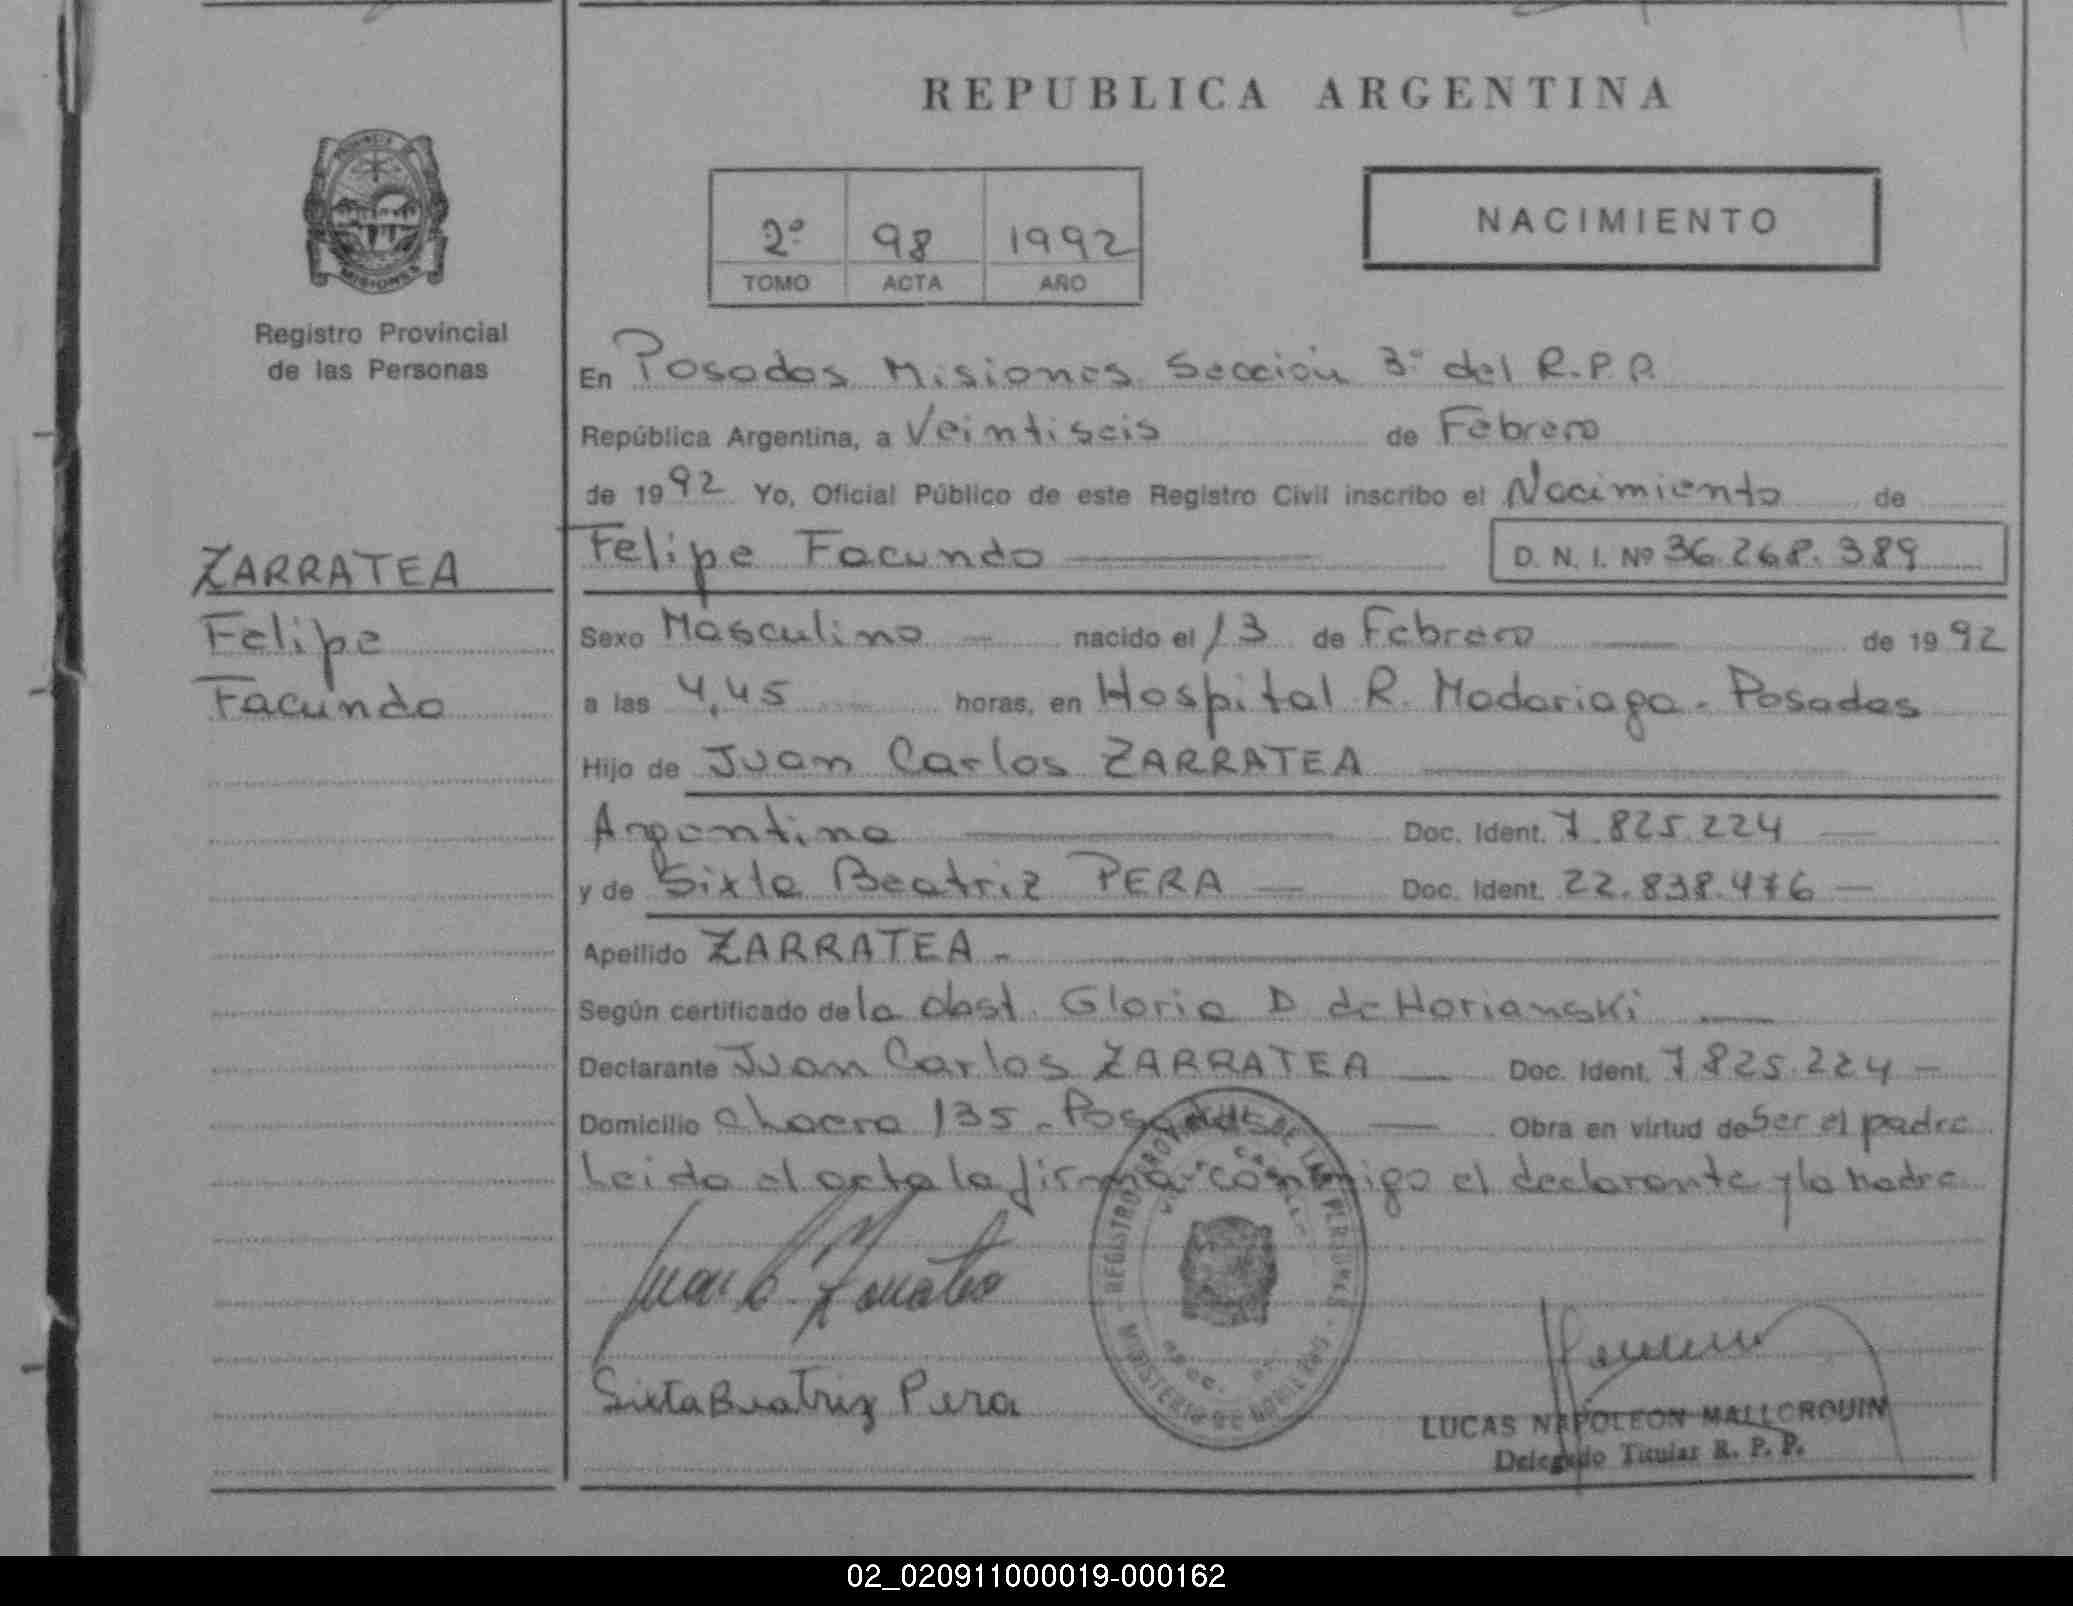 REPUBLICA ARGENTINA
PROVINCIA
MISIONES
Registro Provincial
de las Personas
2º 98 1992
TOMO ACTA AÑO
NACIMIENTO
En Posadas Misiones Sección 3º del R.P.P.
República Argentina, a Veintiseis de Febrero
de 1992 Yo, Oficial Público de este Registro Civil inscribo el Nacimiento de
Felipe Facundo D. N. I. Nº 36.268.389
ZARRATEA
Felipe
Facundo
Sexo Masculino nacido el 13 de Febrero de 1992
a las 4,45 horas, en Hospital R. Madariaga - Posadas
Hijo de Juan Carlos ZARRATEA
Argentina Doc. Ident. 7.825.224
y de Sixta Beatriz PERA Doc. Ident. 22.838.476
Apellido ZARRATEA -
Según certificado de la obst. Gloria D de Horianski
Declarante Juan Carlos ZARRATEA Doc. Ident. 7.825.224
Domicilio Chacra 135 - Posadas Obra en virtud de Ser el padre
Leida el acta la firma conmigo el declarante y la madre
Juan C. Zarratea
Sixta Beatriz Pera
REGISTRO PROVINCIAL DE LAS PERSONAS
MINISTERIO DE GOBIERNO
LUCAS NAPOLEON MALLORQUIN
Delegado Titular R. P. P.
02_020911000019-000162